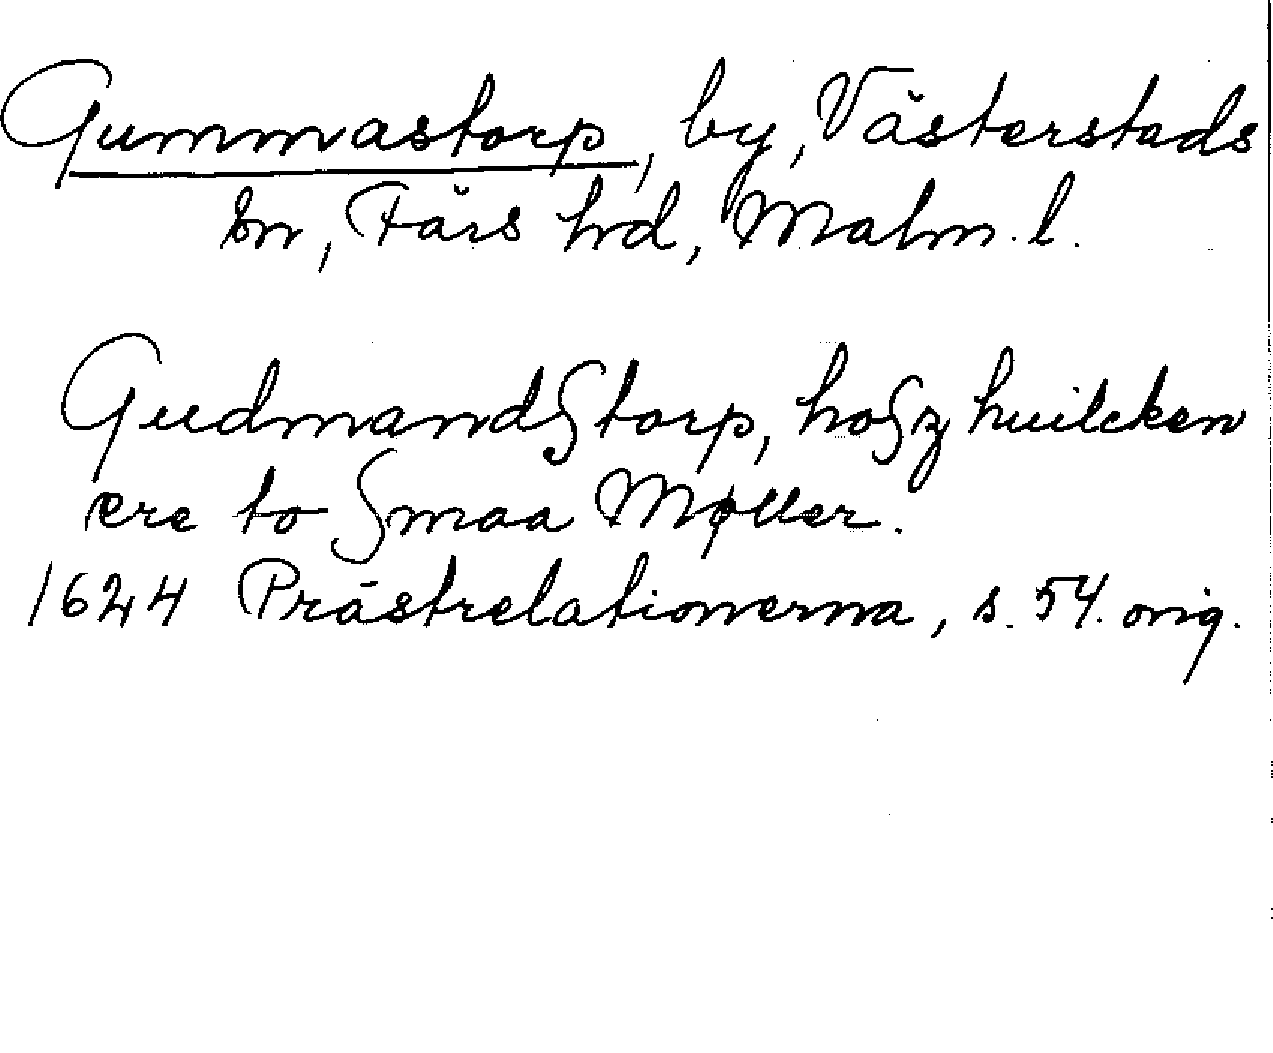 Gummastorp, by, Västerstads
sn, Färs hrd, Malm. l.
Gudmandſtorp, hoſz huilcken
ere to ſmaa Møller.
1624 Prästrelationerna, s. 54. orig.